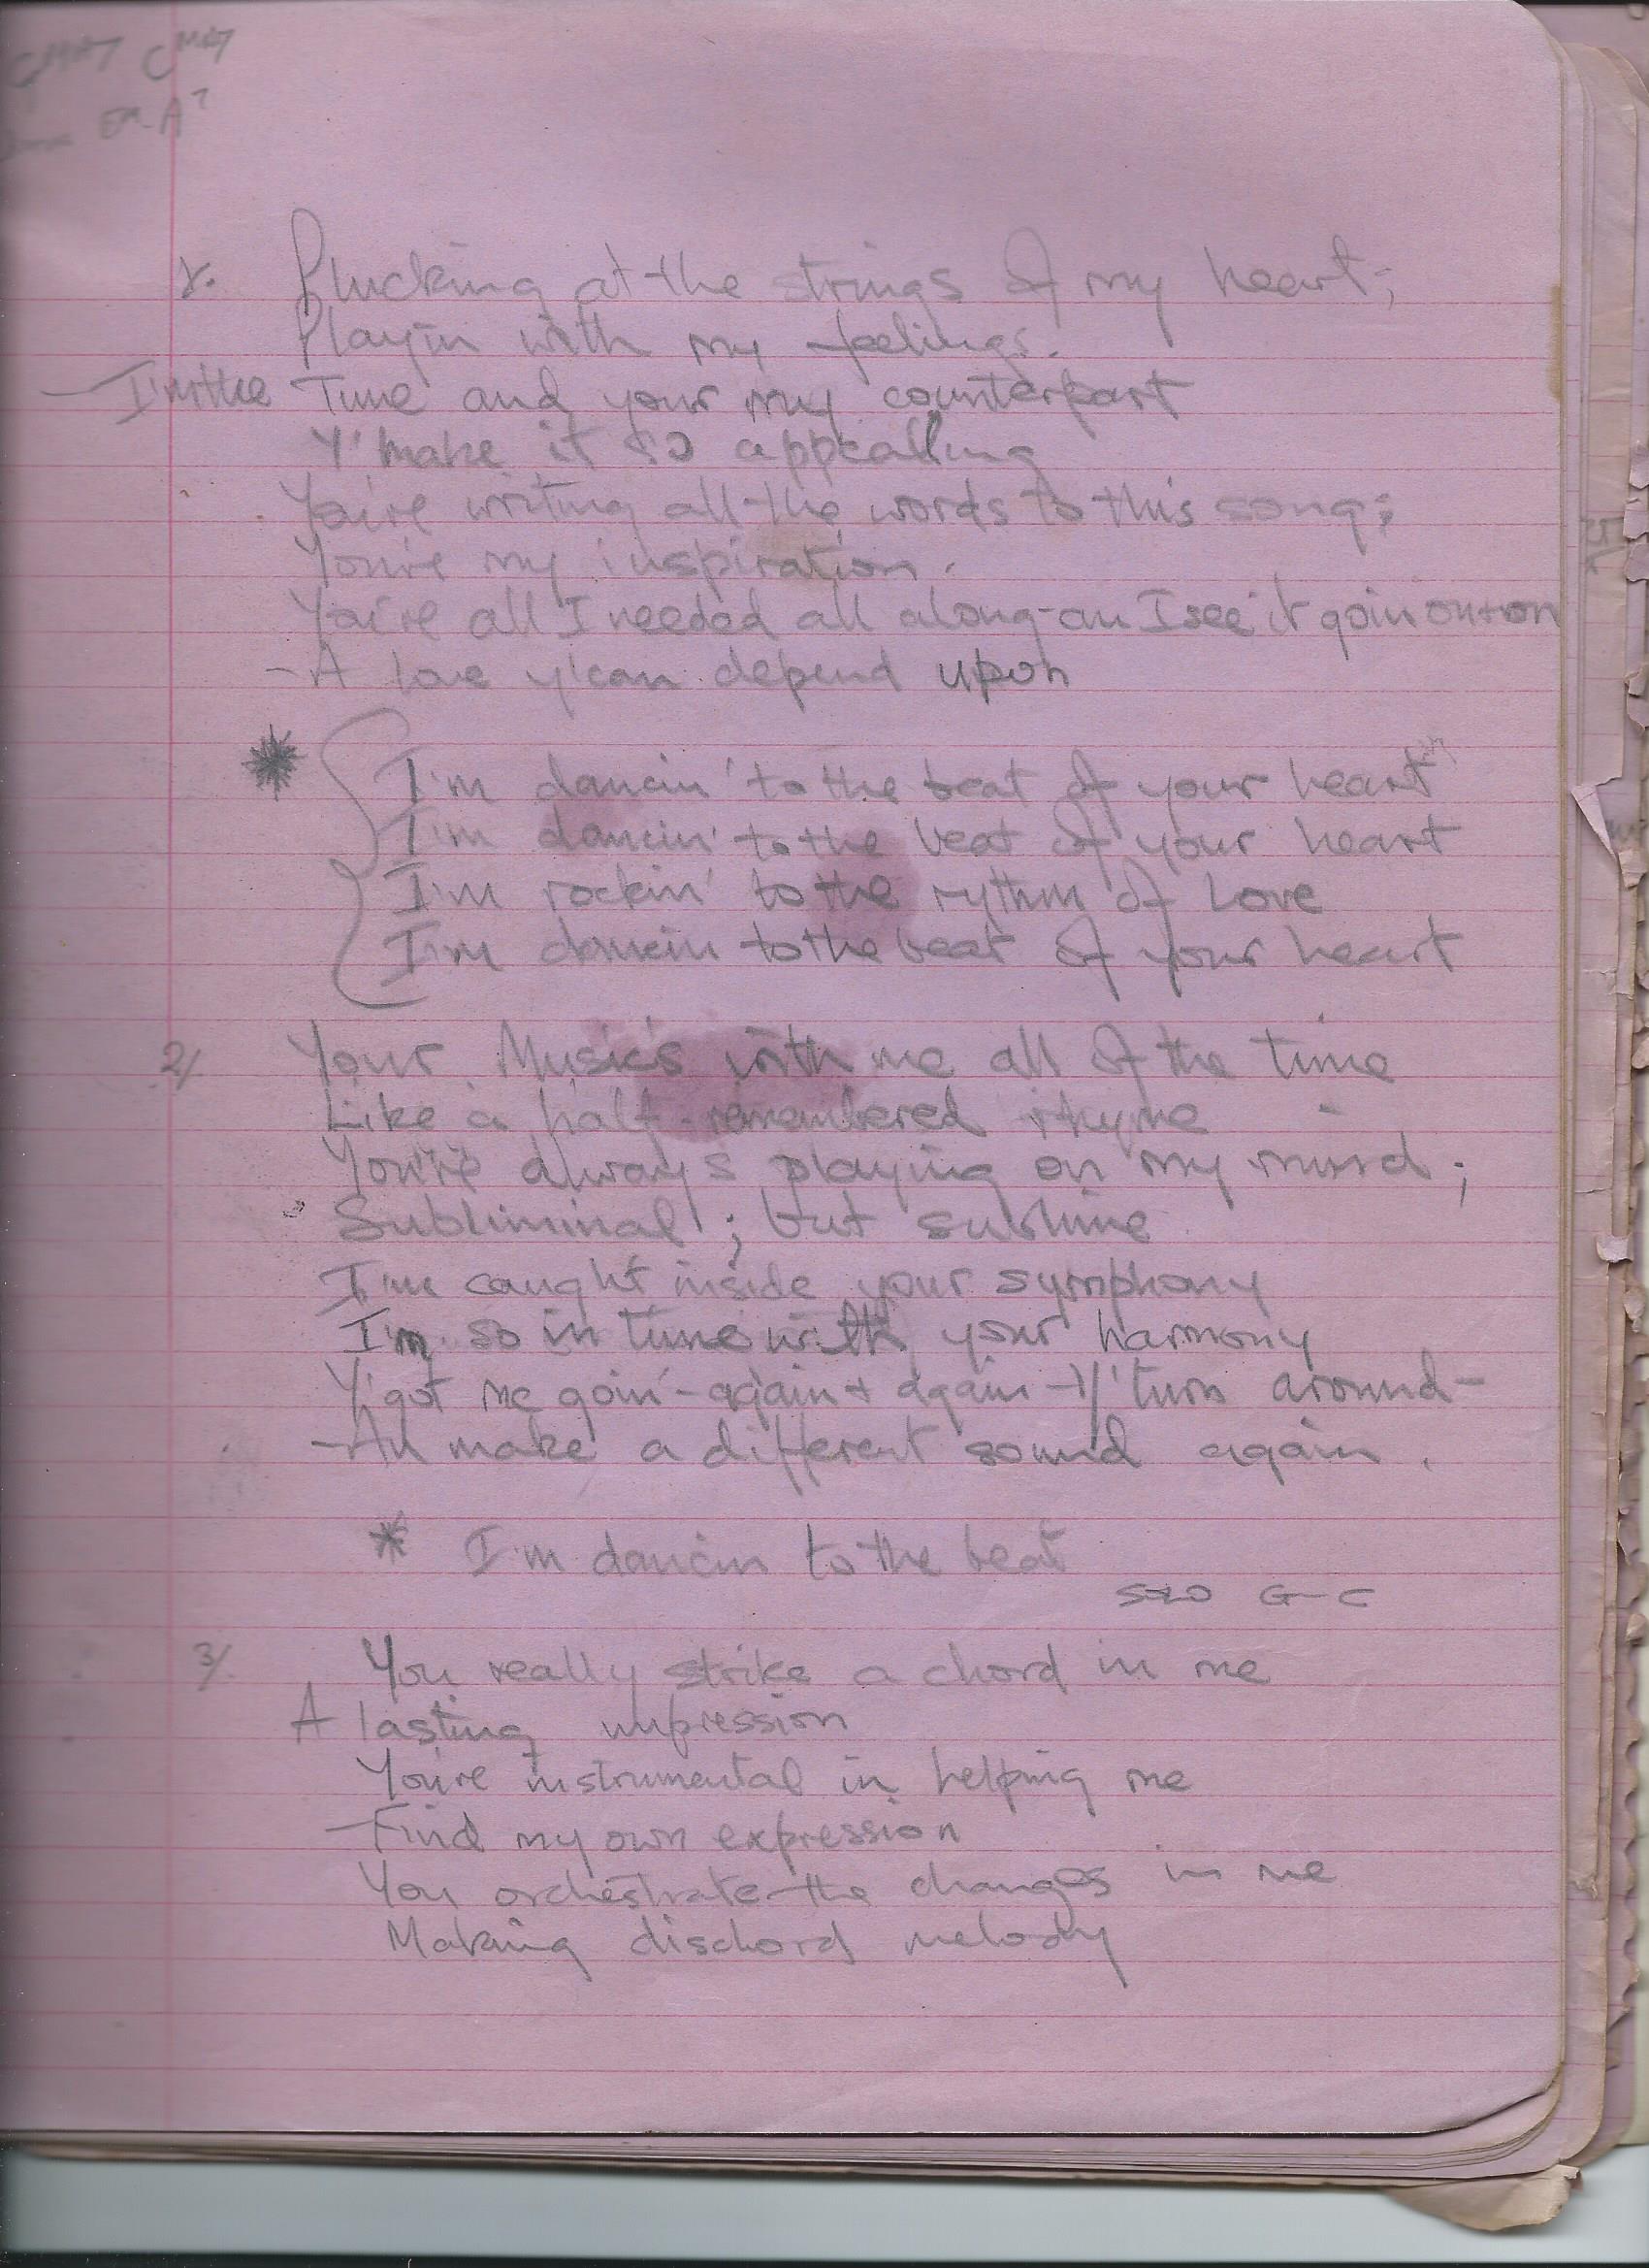 GMA7 CMA7
Em A7
1. Plucking at the strings of my heart;
Playin with my feelings.
- I'm the Tune and your my counterpart
Y' make it so appealling
You're writing all the words to this song;
You're my inspiration.
You're all I needed all along - an I see it goin on + on
- A love y'can depend upon
* I'm dancin' to the beat of your heart
I'm dancin' to the beat of your heart
I'm rockin' to the rythm of Love
I'm dancin to the beat of your heart
2/ Your Music's with me all of the time
Like a half-remembered rhyme
You're always playing on my mind;
Subliminal; but sublime
I'm caught inside your symphony
I'm so in tune with your harmony
Y'got me goin' - again + again - Y' turn around -
- An make a different sound again.
* I'm dancin to the beat
SOLO G - C
3/. You really strike a chord in me
A lasting impression
You're instrumental in helping me
- Find my own expression
You orchestrate the changes in me
Making dischord melody